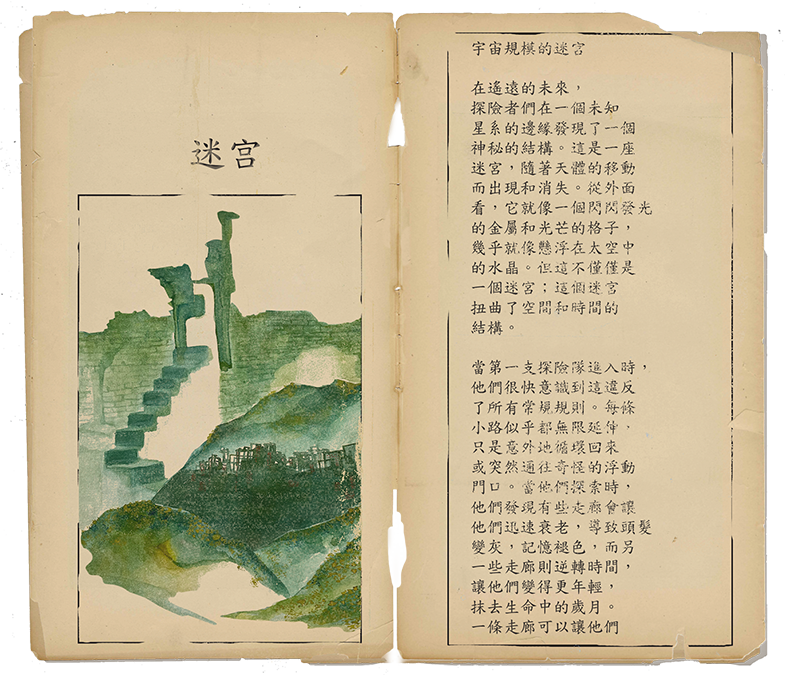 迷宮
宇宙規模的迷宮
在遙遠的未來，
探險者們在一個未知
星系的邊緣發現了一個
神秘的結構。這是一座
迷宮，隨著天體的移動
而出現和消失。從外面
看，它就像一個閃閃發光
的金屬和光芒的格子，
幾乎就像懸浮在太空中
的水晶。但這不僅僅是
一個迷宮；這個迷宮
扭曲了空間和時間的
結構。
當第一支探險隊進入時，
他們很快意識到這違反
了所有常規規則。每條
小路似乎都無限延伸，
只是意外地循環回來
或突然通往奇怪的浮動
門口。當他們探索時，
他們發現有些走廊會讓
他們迅速衰老，導致頭髮
變灰，記憶褪色，而另
一些走廊則逆轉時間，
讓他們變得更年輕，
抹去生命中的歲月。
一條走廊可以讓他們